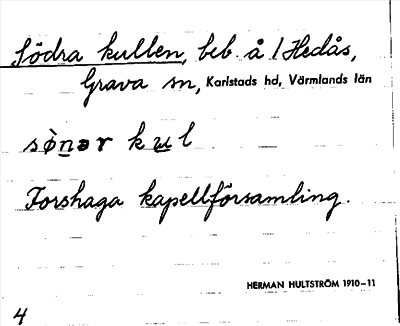 Södra kullen, beb. å 1 Hedås,
Grava sn, Karlstads hd, Värmlands län
sȯ̀nər kul
Forshaga kapellförsamling.
HERMAN HULTSTRÖM 1910–11
4